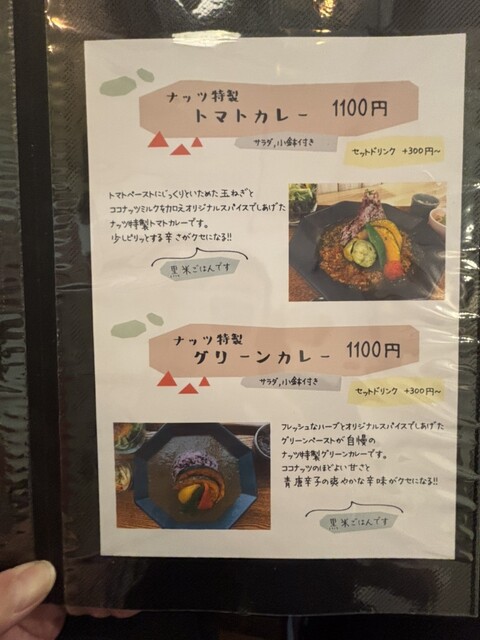 ナッツ特製
トマトカレー 1100円
サラダ,小鉢付き
セットドリンク +300円~
トマトペーストにじっくりといためた玉ねぎと
ココナッツミルクを加えオリジナルスパイスでしあげた
ナッツ特製トマトカレーです。
少しピリッとする辛さがクセになる!!
黒米ごはんです
ナッツ特製
グリーンカレー 1100円
サラダ,小鉢付き
セットドリンク +300円~
フレッシュなハーブとオリジナルスパイスでしあげた
グリーンペーストが自慢の
ナッツ特製グリーンカレーです。
ココナッツのほどよい甘さと
青唐辛子の爽やかな辛味がクセになる!!
黒米ごはんです